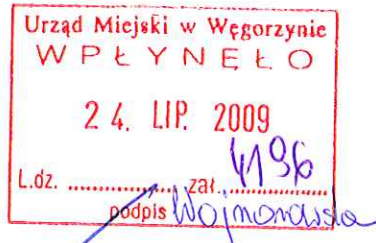 Urząd Miejski w Węgorzynie
WPŁYNĘŁO
24. LIP. 2009
4196
L.dz. .................. zał. ..................
podpis